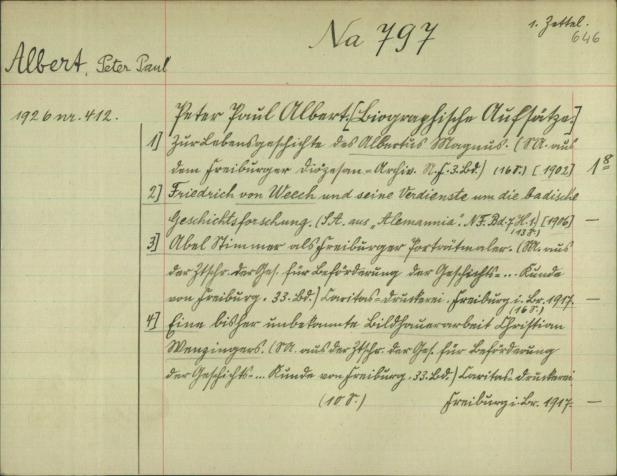 Na 797
1. Zettel.
646
Albert, Peter Paul
1926 nr. 412.
Peter Paul Albert. [Biographische Aufsätze.]
1] Zur Lebensgeschichte des Albertus Magnus. (SA. aus
dem Freiburger Diözesan-Archiv. N.F. 3. Bd.) (16 S.) [1902] 1 8°
2] Friedrich von Weech und seine Verdienste um die badische
Geschichtsforschung. (S.A. aus "Alemannia". N.F. Bd. 7, H. 1.) [1906] —
(13 S.)
3] Abel Stimmer als Freiburger Porträtmaler. (SA. aus
der Ztschr. der Ges. für Beförderung der Geschichts-... Kunde
von Freiburg. 33. Bd.) Caritas-Druckerei. Freiburg i. Br. 1917. —
(16 S.)
4] Eine bisher unbekannte Bildhauerarbeit Christian
Wenzingers. (SA. aus der Ztschr. der Ges. für Beförderung
der Geschichts-... Kunde von Freiburg. 33. Bd.) Caritas-Druckerei
(10 S.) Freiburg i. Br. 1917. —